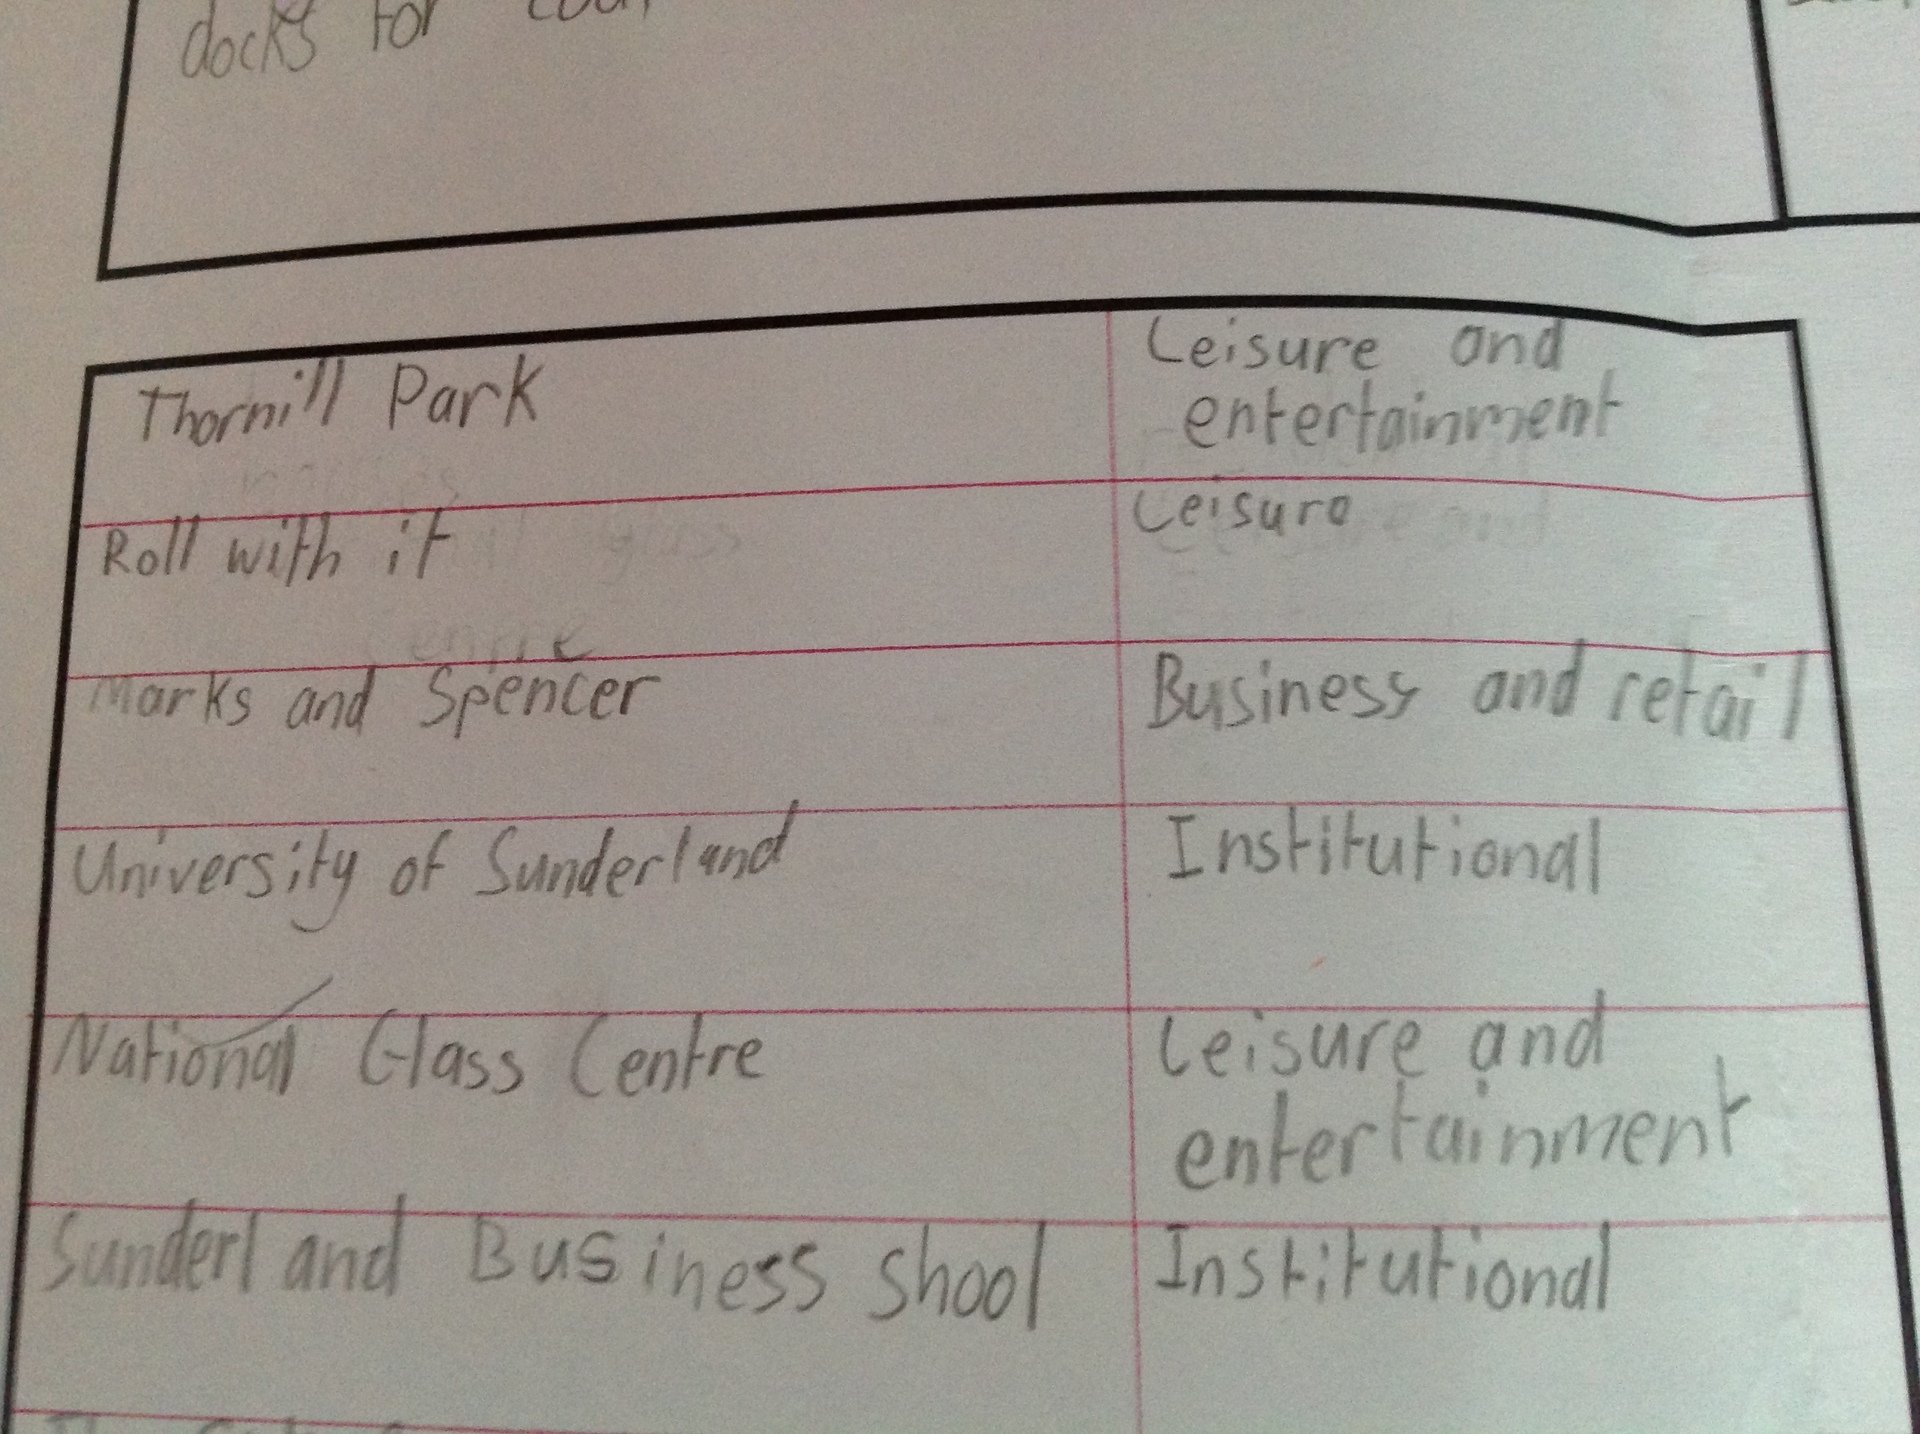 docks for
Thornill Park
Leisure and
entertainment
Roll with it
Leisure
Marks and Spencer
Business and retail
University of Sunderland
Institutional
National Glass Centre
Leisure and
entertainment
Sunderland Business shool
Institutional